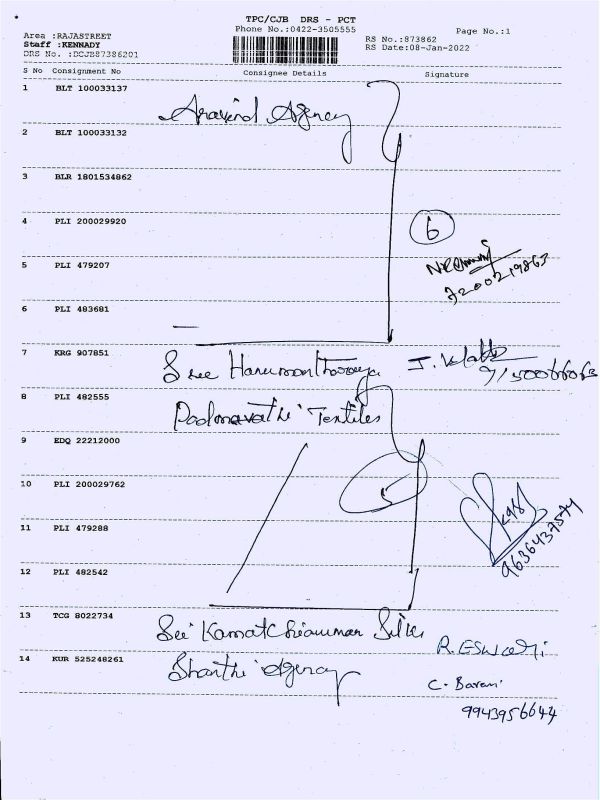 TPC/CJB DRS - PCT
Phone No.:0422-3505555
Page No.:1
Area :RAJASTREET
Staff :KENNADY
DRS No. :DCJB87386201
RS No.:873862
RS Date:08-Jan-2022
S No Consignment No Consignee Details Signature
1 BLT 100033137
Aravind Agency
2 BLT 100033132
3 BLR 1801534862
4 PLI 200029920
6
5 PLI 479207
7200219863
6 PLI 483681
7 KRG 907851
Sree Hanumanthooraya J.
8 PLI 482555
Padmavathi Textiles
9 EDQ 22212000
10 PLI 200029762
5
11 PLI 479288
9636437574
12 PLI 482542
13 TCG 8022734
Sri Kamatchiamman Silks R.ESwaRi
14 KUR 525248261
Shanthi Agency
C. Barani
9943956644